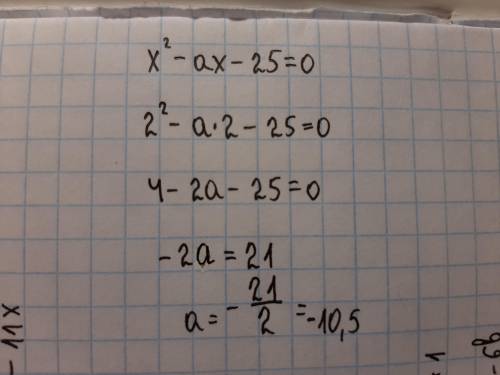 x² - ax - 25 = 0
2² - a·2 - 25 = 0
4 - 2a - 25 = 0
-2a = 21
a = - 21/2 = -10,5
- 11x